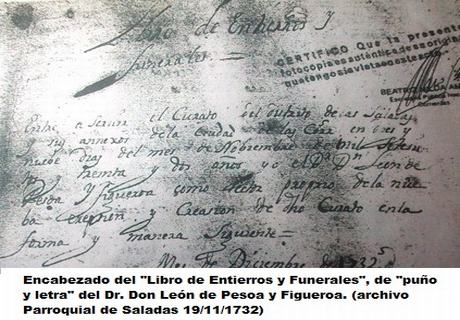 Libro de Entierros y
funerales =
CERTIFICO Que la presente
fotocopia es auténtica de su origi
que tengo a la vista
BEATRIZ
Entre a servir el Curato del Partido de las Saladas
y sus annexos de la Ciudad de las Corr.tes en diez y
nuebe dias del mes de Noviembre de mil setesi
tos treinta y dos años yo el D.r D.n Leon de
Pesoa y Figueroa como Rector proprio de la nue
ba erepsion y Creasion de dho Curato en la
forma y manera Siguiente =
Mes de Diciembre de 1732
Encabezado del "Libro de Entierros y Funerales", de "puño
y letra" del Dr. Don León de Pesoa y Figueroa. (archivo
Parroquial de Saladas 19/11/1732)